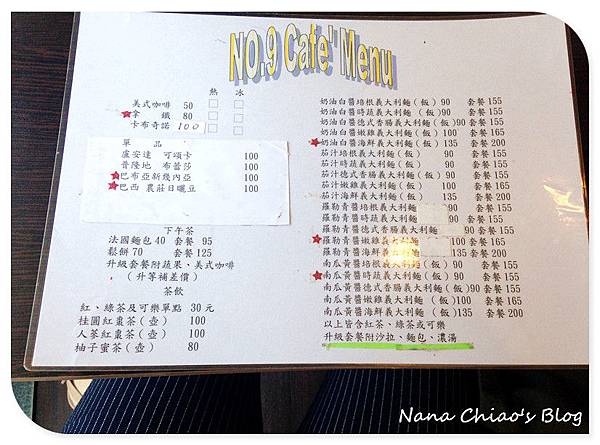 NO.9 Cafe' Menu
熱 冰
美式咖啡 50
拿 鐵 80
卡布奇諾 100
單 品
盧安達 可頌卡 100
普隆地 布蕾莎 100
巴布亞新幾內亞 100
巴西 農莊日曬豆 100
下午茶
法國麵包40 套餐 95
鬆餅70 套餐125
升級套餐附蔬果、美式咖啡
(升等補差價)
茶飲
紅、綠茶及可樂單點 30元
桂圓紅棗茶(壺) 100
人蔘紅棗茶(壺) 100
柚子蜜茶(壺) 80
奶油白醬培根義大利麵(飯)90 套餐155
奶油白醬時蔬義大利麵(飯)90 套餐155
奶油白醬德式香腸義大利麵(飯)90 套餐155
奶油白醬嫩雞義大利麵(飯) 100 套餐165
奶油白醬海鮮義大利麵(飯)135 套餐200
茄汁培根義大利麵(飯) 90 套餐155
茄汁時蔬義大利麵(飯) 90 套餐155
茄汁德式香腸義大利麵(飯) 90 套餐155
茄汁嫩雞義大利麵(飯) 100 套餐165
茄汁海鮮義大利麵(飯) 135 套餐200
羅勒青醬培根義大利麵 90 套餐155
羅勒青醬時蔬義大利麵 90 套餐155
羅勒青醬德式香腸義大利麵 90 套餐155
羅勒青醬嫩雞義大利麵 100 套餐165
羅勒青醬海鮮義大利麵 135 套餐200
南瓜黃醬培根義大利麵(飯)90 套餐155
南瓜黃醬時蔬義大利麵(飯)90 套餐155
南瓜黃醬德式香腸義大利麵(飯)90 套餐155
南瓜黃醬嫩雞義大利麵(飯)100 套餐165
南瓜黃醬海鮮義大利麵(飯)135 套餐200
以上皆含紅茶、綠茶或可樂
升級套餐附沙拉、麵包、濃湯
Nana Chiao's Blog